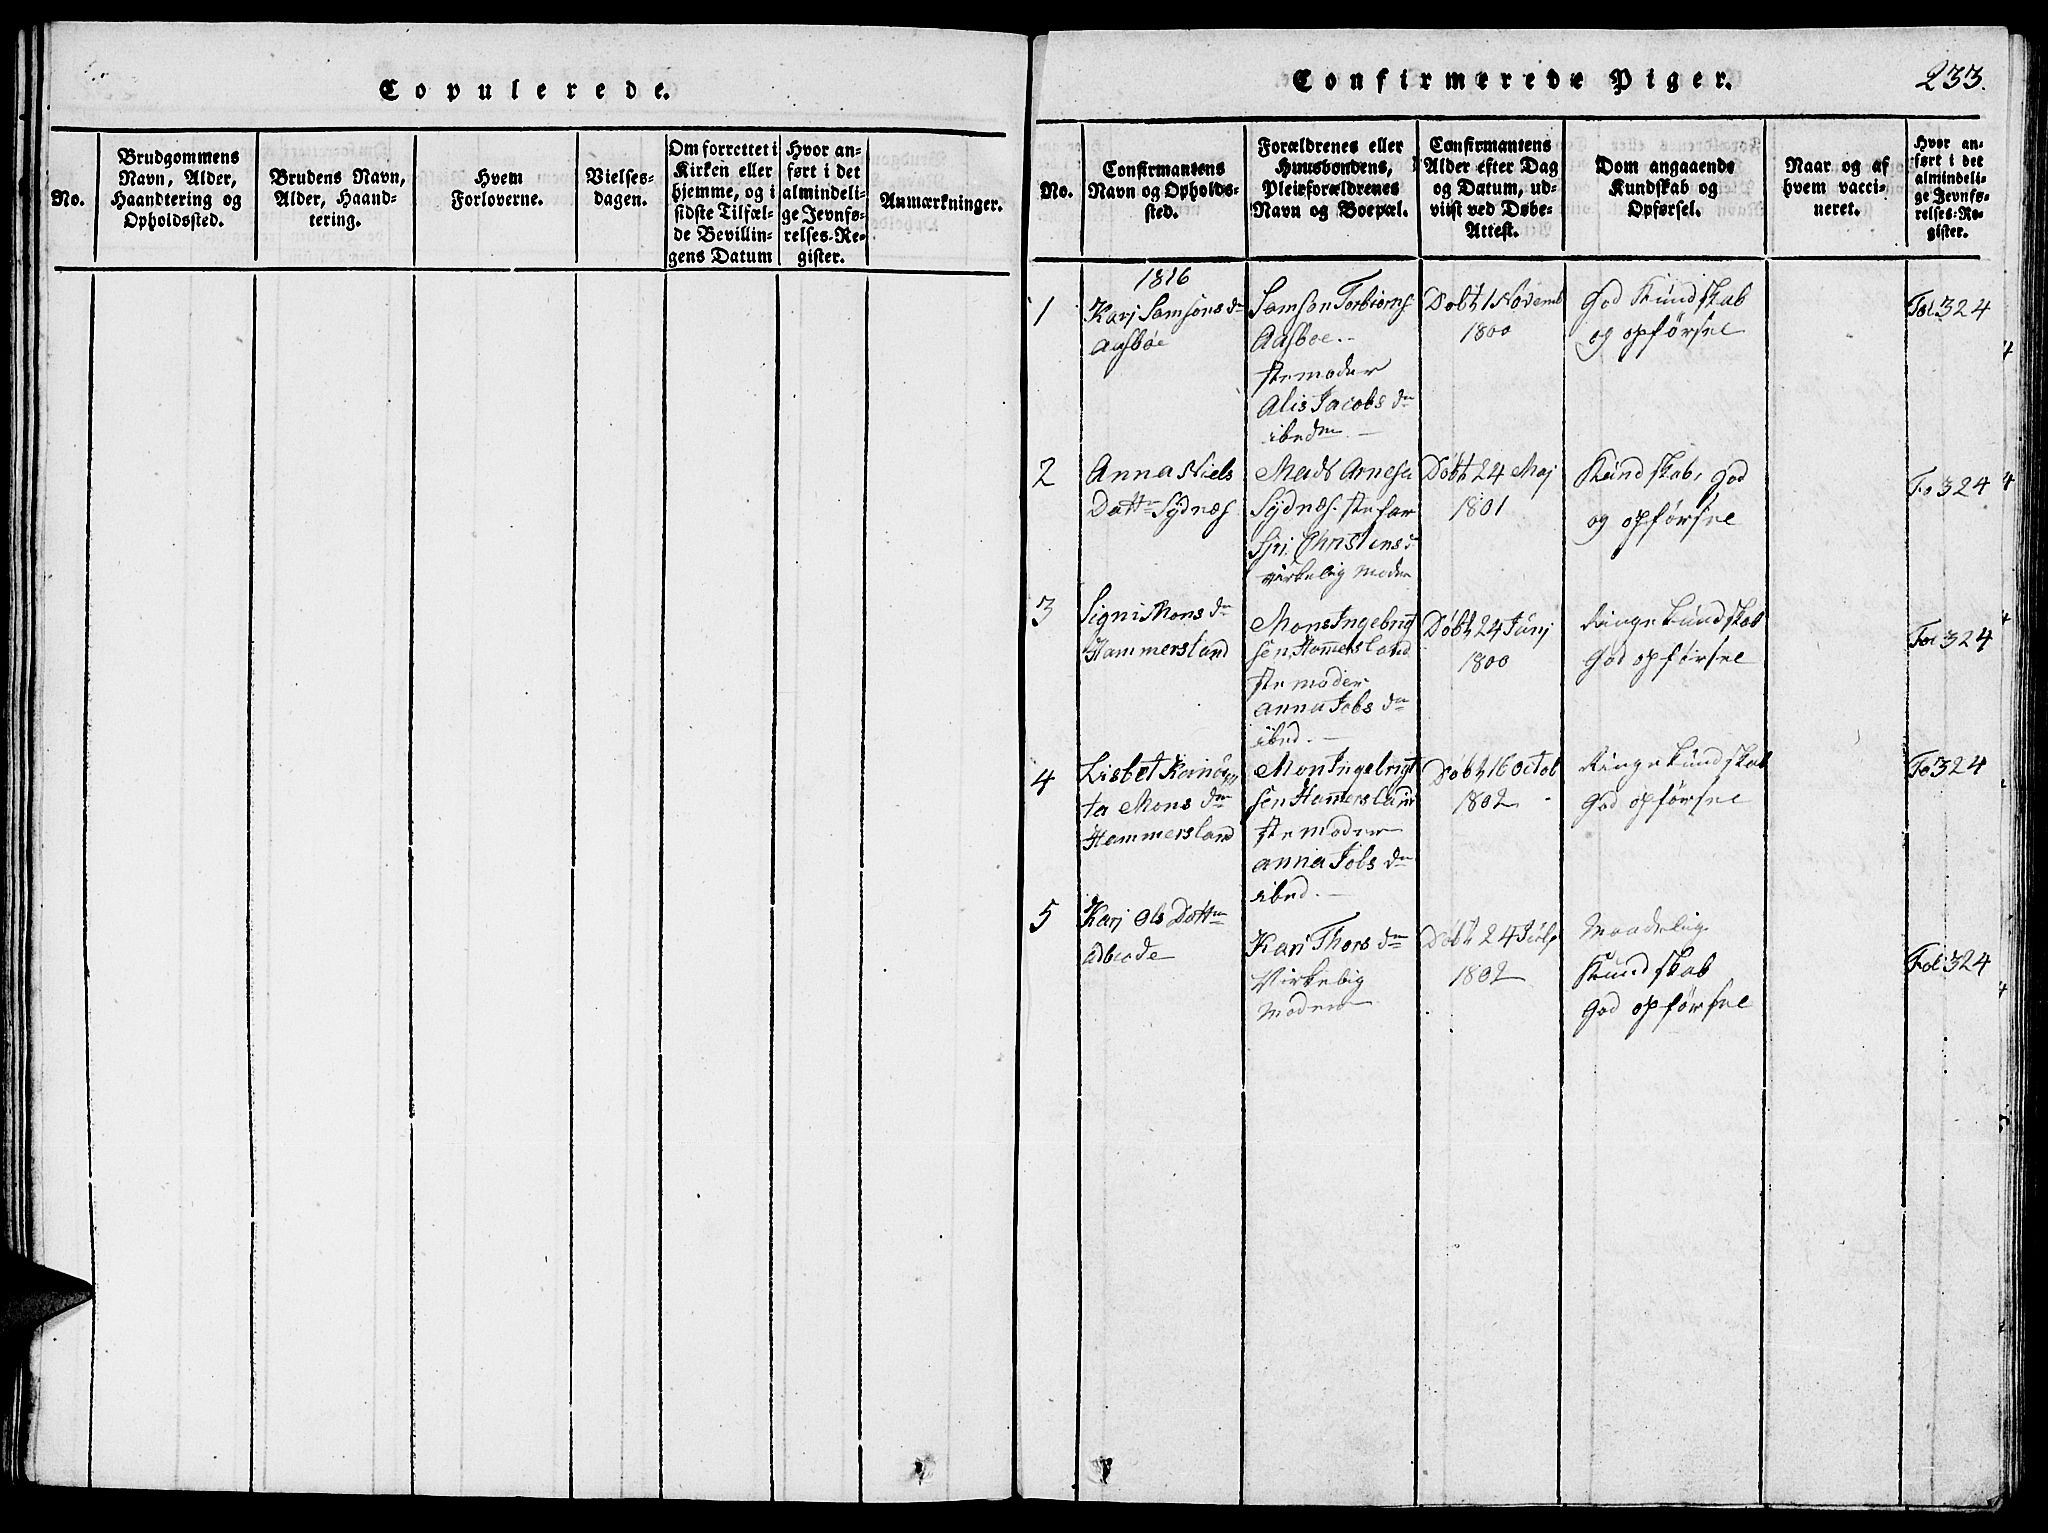 Copulerede.
No.
Brudgommens
Navn, Alder,
Haandtering og
Opholdssted.
Brudens Navn,
Alder, Haand-
tering.
Hvem
Forloverne.
Vielses-
dagen.
Om forrettet i
Kirken eller
hjemme, og i
sidste Tilfæl-
de Bevillin-
gens Datum
Hvor an-
ført i det
almindeli-
ge Jevnfø-
relses-Re-
gister.
Anmærkninger.
Confirmerede Piger.
233.
No.
Confirmantens
Navn og Opholds-
sted.
Forældrenes eller
Huusbondens,
Pleieforældrenes
Navn og Boepæl.
Confirmantens
Alder efter Dag
og Datum, ud-
viist ved Døbe-
Attest.
Dom angaaende
Kundskab og
Opførsel.
Naar og af
hvem vacci-
neret.
Hvor an-
ført i det
almindeli-
ge Jevnfø-
relses-Re-
gister.
1816
1
Karj Samsons dr
Aasbøe
Samson Torbiorns
Aasboe.
stemoder
Alis Jacobs dr
ibedm
Dobt 1 Novemb
1800
God Kundskab
og opførsel
Fol 324
2
Anna Niels
Dattr Sydnes
Mads Arnesen
Sydnes. stefar
Siri Christens d
virkelig moder
Døbt 24 Maj
1801
Kundskab, God
og opførsel
Fo 324
3
Signi Mons dr
Hammersland
Mons Ingebrigt
sen Hamersland
stemoder
anna Jobs dr
ibed.
Døbt 24 Junj
1800
Ringe kundskab
God opførsel
Fol 324
4
Lisbet
ta Mons dr
Hammersland
Mon Ingebrigt
sen Hamersland
stemoder
anna Jobs dr
ibed.
Døbt 16 octob
1802
Ringe kundskab
God opførsel
Fo 324
5
Karj Ols Dattr
Kari Thors dr
Virkelig
Moder
Døbt 24 Julj
1802
Maadelig
Kundskab
God opførsel
Fol 324